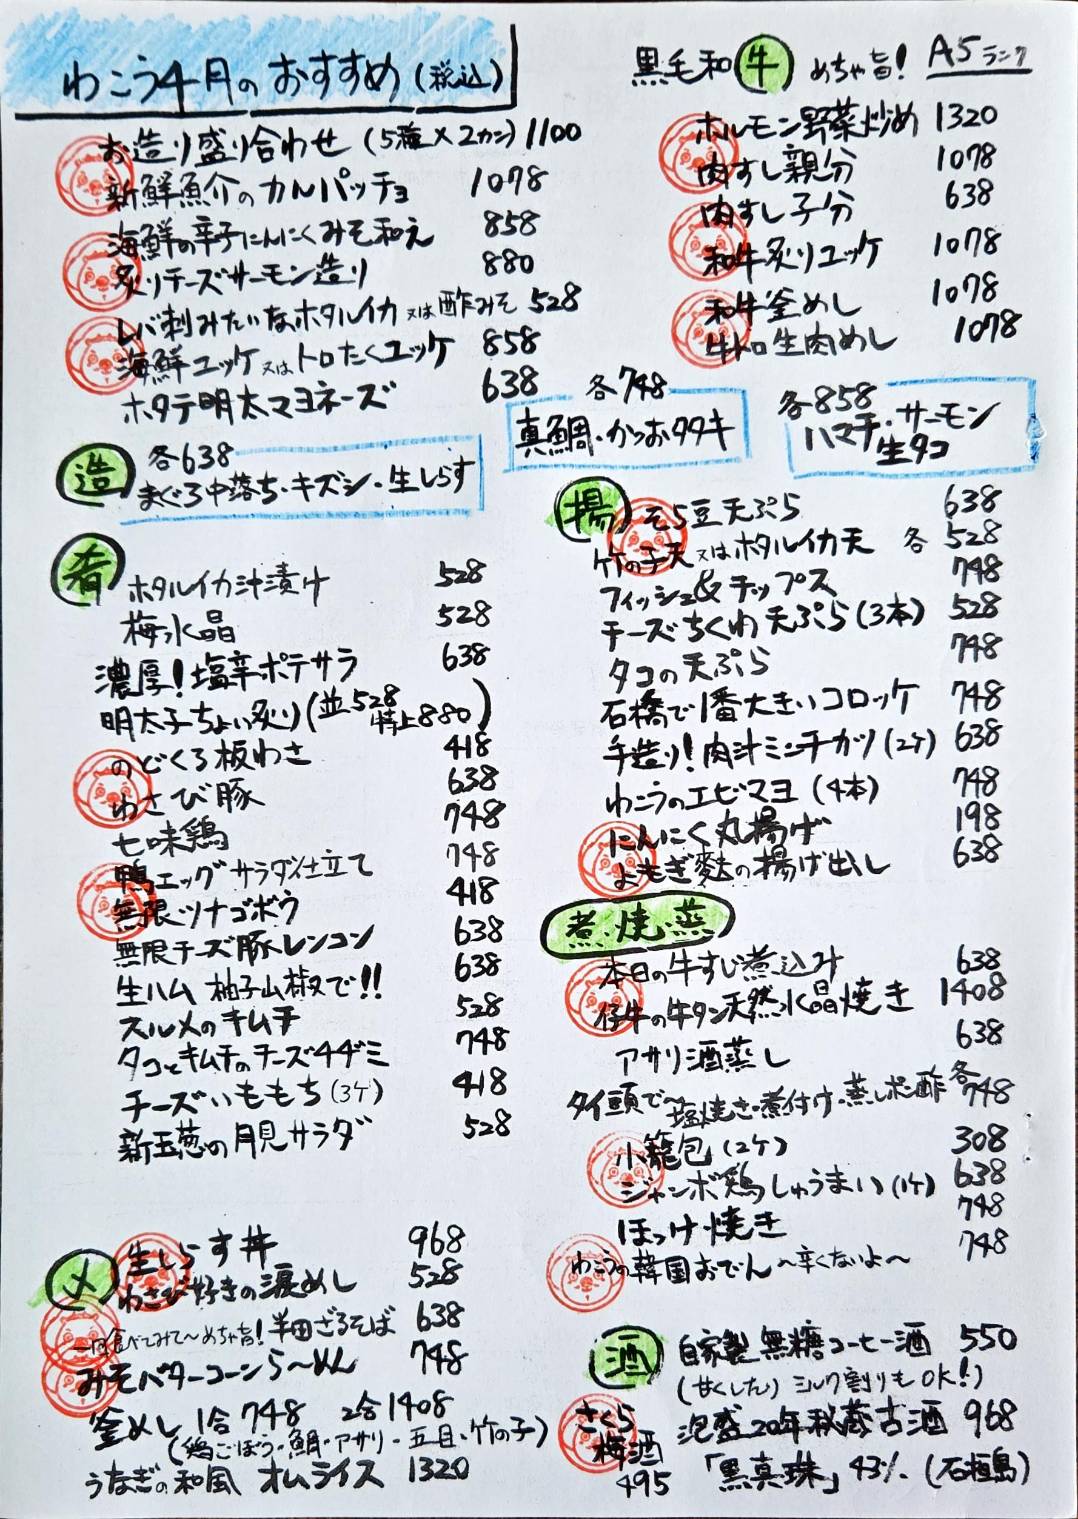 わこう4月のおすすめ(税込)
お造り盛り合わせ(5種×2カン)1100
新鮮魚介のカルパッチョ 1078
海鮮の辛子にんにくみそ和え 858
炙りチーズサーモン造り 880
レバ刺みたいなホタルイカ又は酢みそ 528
海鮮ユッケ又はトロたくユッケ 858
ホタテ明太マヨネーズ 638
黒毛和牛 めちゃ旨! A5ランク
ホルモン野菜炒め 1320
肉すし親分 1078
肉すし子分 638
和牛炙りユッケ 1078
和牛釜めし 1078
牛トロ生肉めし 1078
造
各638
まぐろ中落ち・キズシ・生しらす
各748
真鯛・かつおタタキ
各858
ハマチ・サーモン
生タコ
肴
ホタルイカ汁漬け 528
梅水晶 528
濃厚!塩辛ポテサラ 638
明太子ちょい炙り(並528
特上880)
のどくろ板わさ 418
わさび豚 638
七味鶏 748
鴨エッグサラダ仕立て 748
無限ツナゴボウ 418
無限チーズ豚レンコン 638
生ハム 柚子山椒で!! 638
スルメのキムチ 528
タコとキムチのチーズチヂミ 748
チーズいももち(3ケ) 418
新玉葱の月見サラダ 528
揚
そら豆天ぷら 638
竹の子天又はホタルイカ天 各528
フィッシュ&チップス 748
チーズちくわ天ぷら(3本) 528
タコの天ぷら 748
石橋で1番大きいコロッケ 748
手造り!肉汁ミンチカツ(2ケ) 638
わこうのエビマヨ(4本) 748
にんにく丸揚げ 198
よもぎ麩の揚げ出し 638
煮・焼・蒸
本日の牛すじ煮込み 638
仔牛の牛タン天然水晶焼き 1408
アサリ酒蒸し 638
タイ頭で〜塩焼き・煮付け・蒸しポン酢 各748
小籠包(2ケ) 308
ジャンボ鶏しゅうまい(1ケ) 638
ほっけ焼き 748
わこうの韓国おでん〜辛くないよ〜 748
〆
生しらす丼 968
わさび好きの涙めし 528
一回食べてみて〜めちゃ旨!半田ざるそば 638
みそバターコーンら〜めん 748
釜めし 1合748 2合1408
(鶏ごぼう・鯛・アサリ・五目・竹の子)
うなぎの和風オムライス 1320
酒
自家製 無糖コーヒー酒 550
(甘くしたり ミルク割りもOK!)
さくら
梅酒
495
泡盛20年秘蔵古酒 968
「黒真珠」43%(石垣島)